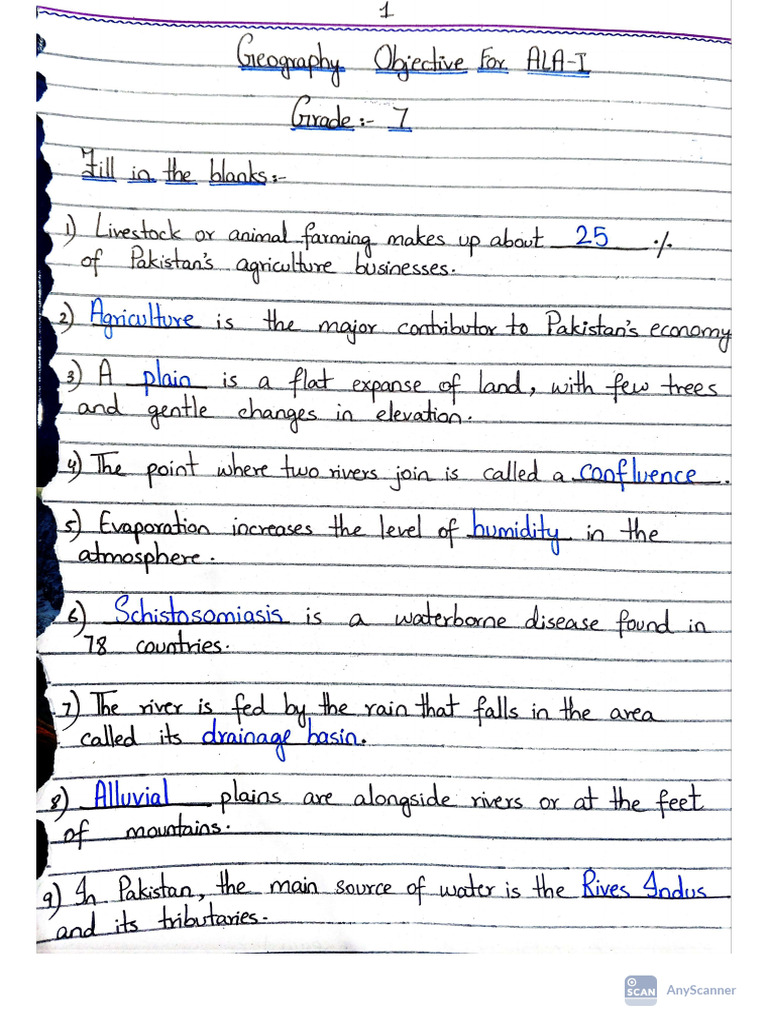 1
Geography Objective For ALA-I
Grade:- 7
Fill in the blanks:-
1) Livestock or animal farming makes up about 25 %
of Pakistan's agriculture businesses.
2) Agriculture is the major contributor to Pakistan's economy
3) A plain is a flat expanse of land, with few trees
and gentle changes in elevation.
4) The point where two rivers join is called a confluence.
5) Evaporation increases the level of humidity in the
atmosphere.
6) Schistosomiasis is a waterborne disease found in
78 countries.
7) The river is fed by the rain that falls in the area
called its drainage basin.
8) Alluvial plains are alongside rivers or at the feet
of mountains.
9) In Pakistan, the main source of water is the Rives Indus
and its tributaries.
SCAN AnyScanner